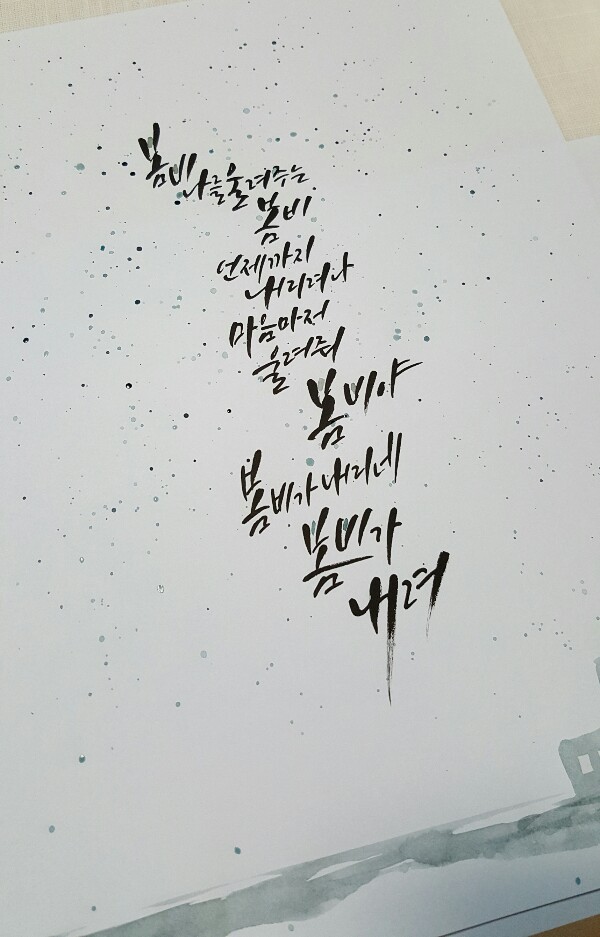 봄비
나를울려주는
봄비
언제까지
내리려나
마음마저
울려줘
봄비야
봄비가내리네
봄비가
내려